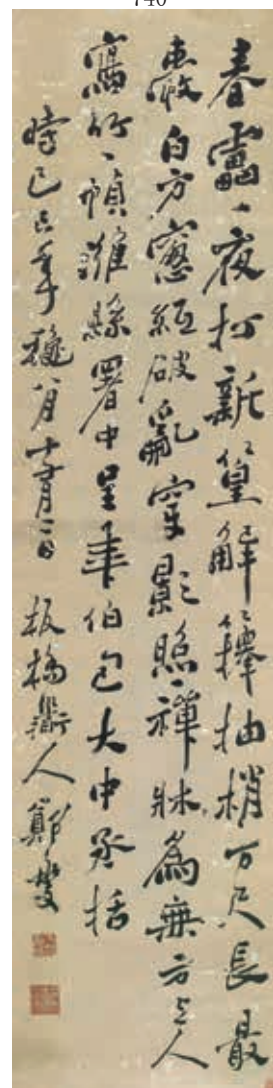 740
春雷一夜打新篁解籜抽梢万尺長最
愛白方窻紙破亂穿影照禪牀為無方上人
寫竹一幀濰縣署中呈年伯包大中丞括
時己巳年穐八月十有日 板橋衟人鄭燮